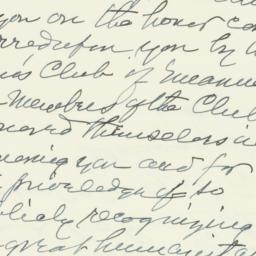 you on the honor con
rred upon you by
Club of
Members of the Club
themselves in
you and for
privilege of so
licly recognizing
great humanita